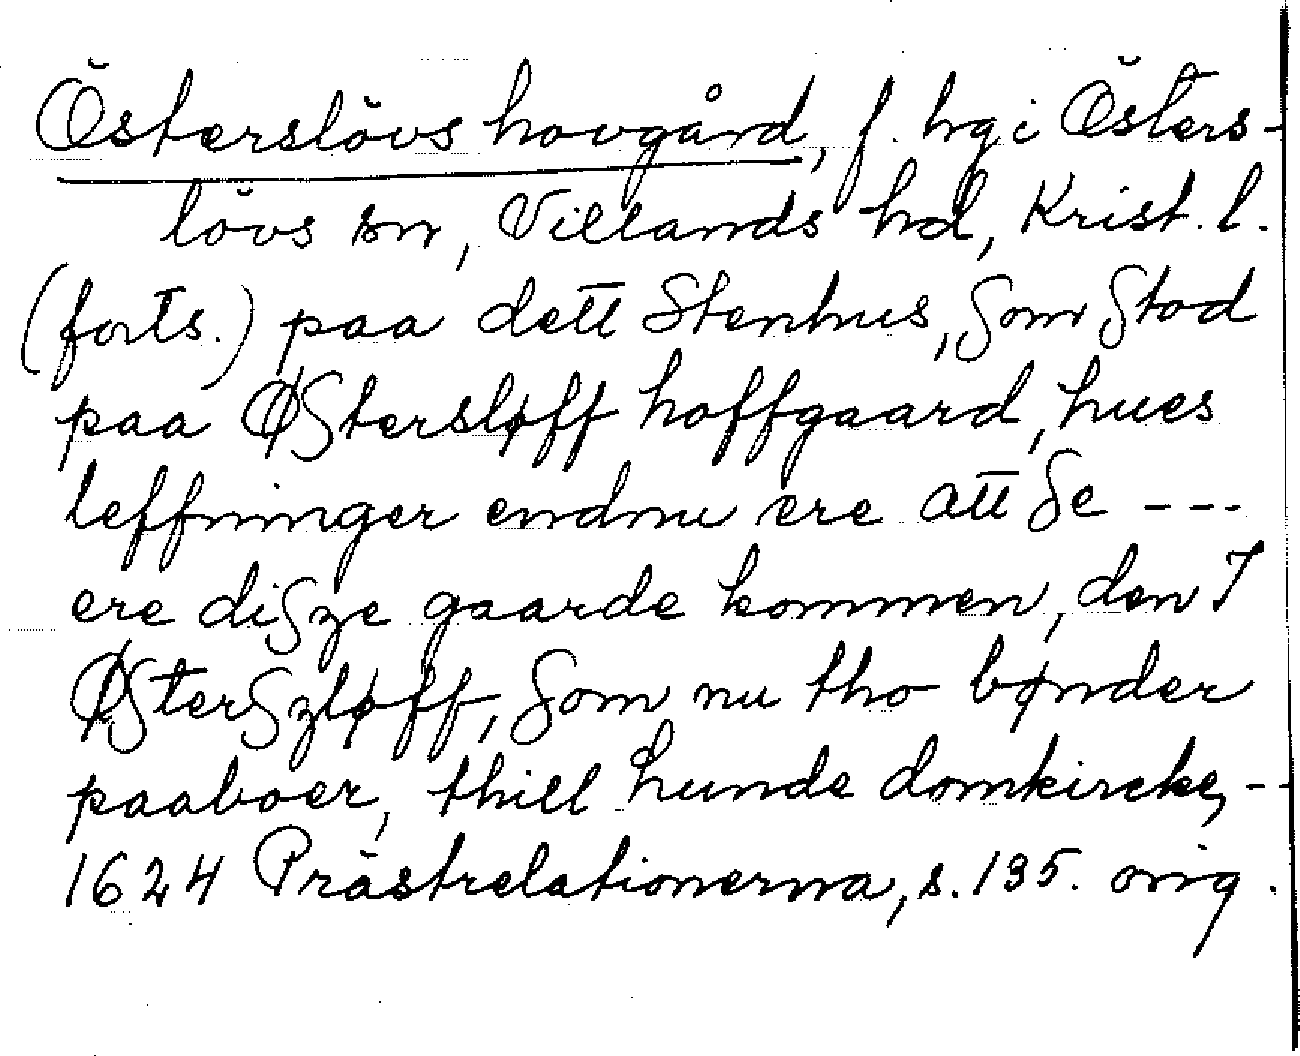 Österslövs hovgård, f. hrg i Östers-
lövs sn, Villands hd, Krist. l.
(forts.) paa dett Stenhus, som stod
paa Østersløff hoffgaard, hues
leffninger endnu ere att se ---
ere disze gaarde kommen, den I
Østerszløff, som nu tho bønder
paaboer, thill Lunde domkircke, --
1624 Prästrelationerna, s. 135. orig.